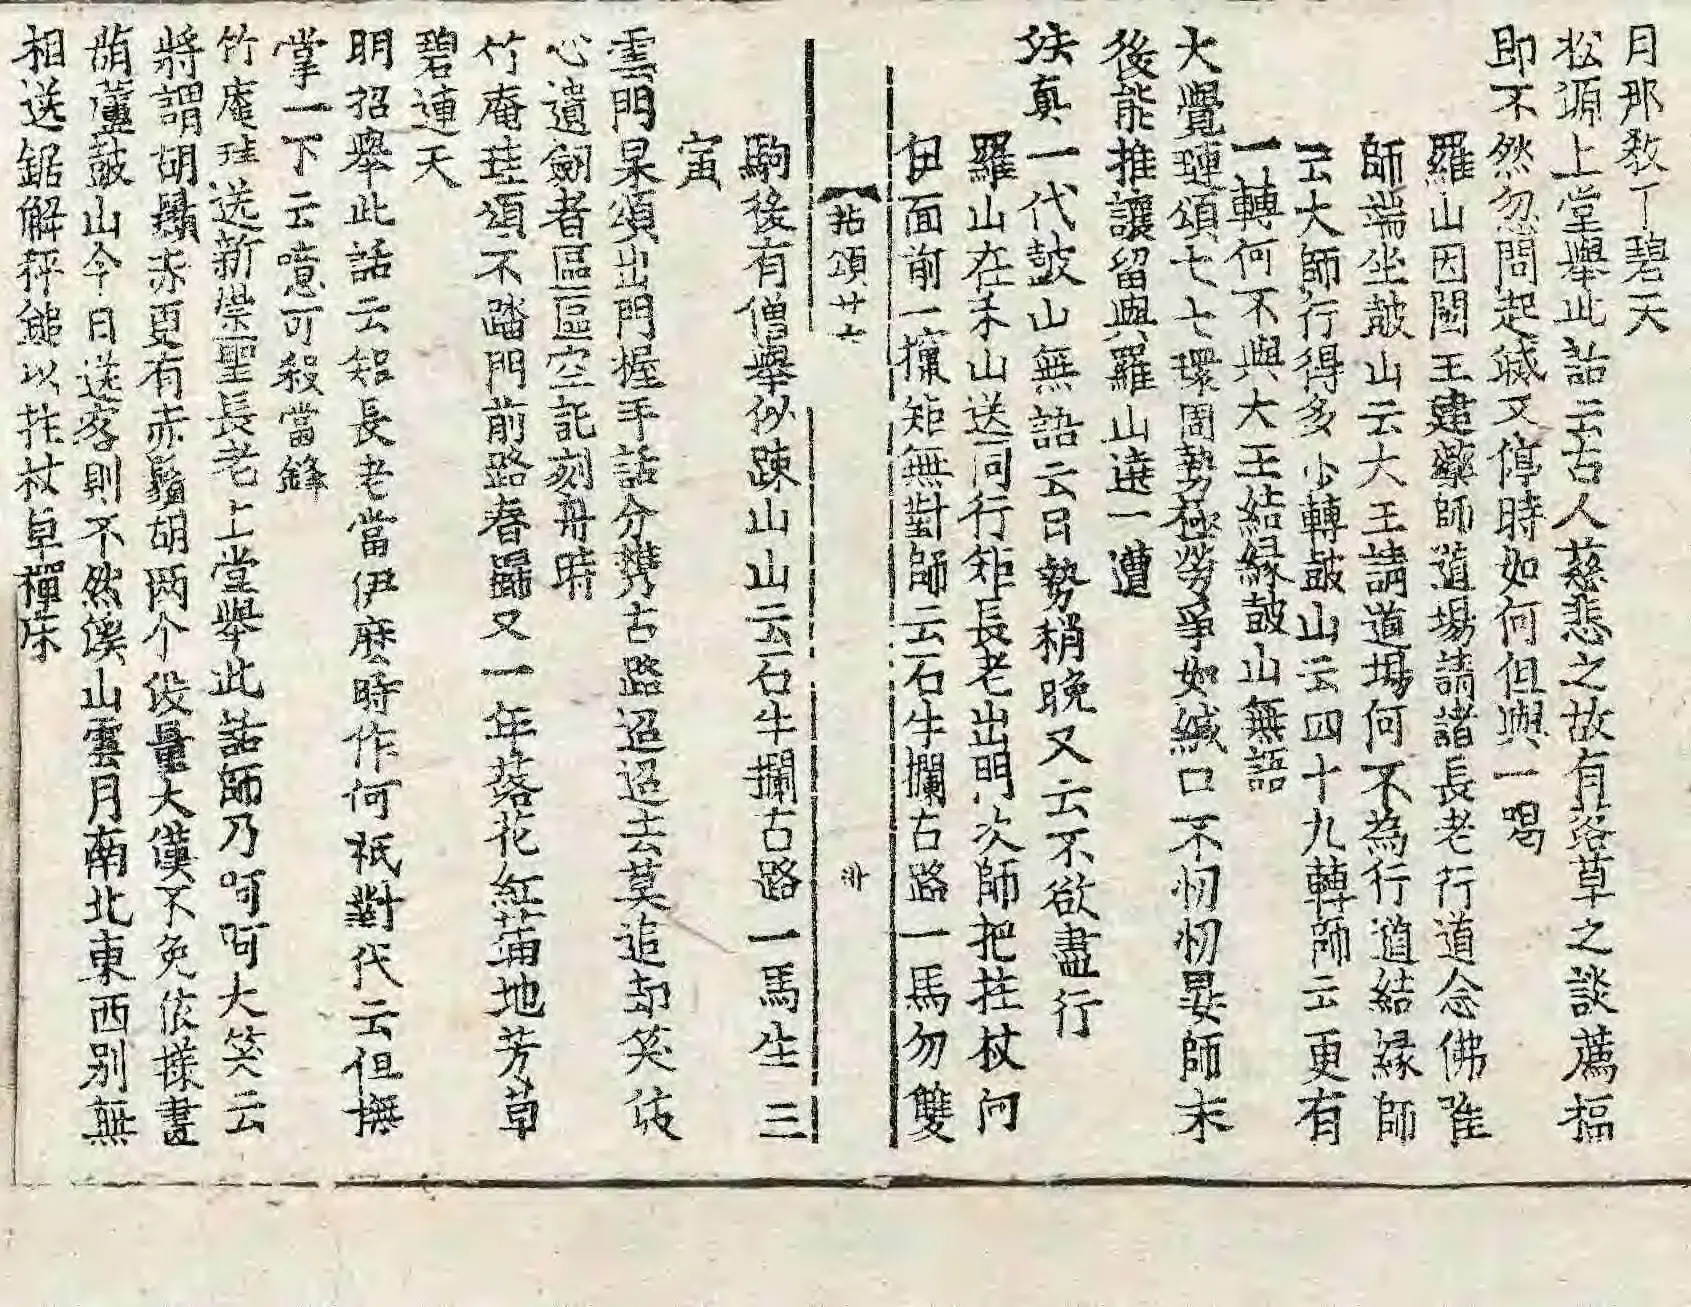 月那教了碧天
松源上堂舉此話云古人慈悲之故有落草之談薦福
即不然忽問起滅又停時如何但與一喝
羅山因閩王建藥師道場請諸長老行道念佛唯
師端坐皷山云大王請道場何不為行道結緣師
云大師行得多少轉皷山云四十九轉師云更有
一轉何不與大王結緣皷山無語
大覺璉頌七七環周勢極勞爭如緘口不忉忉晏師末
後能推讓留與羅山遶一遭
法真一代皷山無語云日勢稍晚又云不欲盡行
羅山在禾山送同行矩長老出門次師把拄杖向
伊面前一攛矩無對師云石牛攔古路一馬勿雙
拈頌廿七
駒後有僧舉似踈山山云石牛攔古路一馬生三
寅
雲門杲頌出門握手話分携古路迢迢去莫追却笑
心遺劒者區區空記刻舟時
竹庵珪頌不踏門前路春歸又一年落花紅滿地芳草
碧連天
明招舉此話云矩長老當伊麽時作何祇對代云但撫
掌一下云噫可殺當鋒
竹庵珪送新崇聖長老上堂舉此話師乃呵呵大笑云
將謂胡鬚赤更有赤鬚胡兩个沒量大漢不免依㨾畫
葫蘆皷山今日送客則不然溪山雲月南北東西別無
相送鋸解秤鎚以拄杖卓禪床